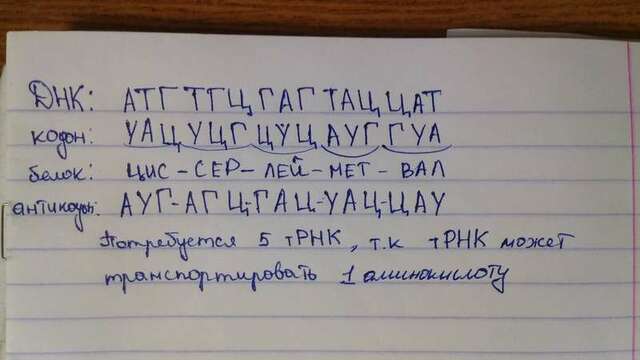 ДНК: АТГ ТГЦ ГАГ ТАЦ ЦАТ
кодон: УАЦ УЦГ ЦУЦ АУГ ГУА
белок: ЦИС - СЕР - ЛЕЙ - МЕТ - ВАЛ
антикодон: АУГ-АГЦ-ГАЦ-УАЦ-ЦАУ
Потребуется 5 тРНК, т.к тРНК может
транспортировать 1 аминокислоту